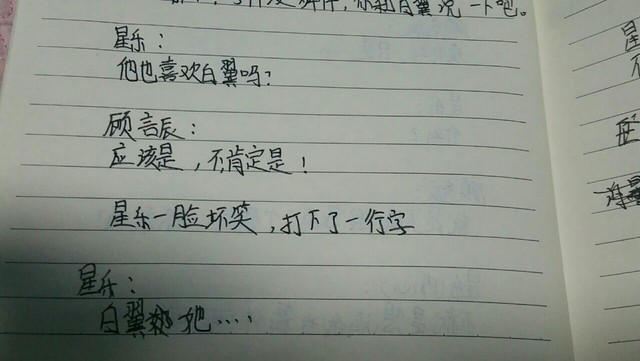 件,你和白翼说一下吧。
星乐:
他也喜欢白翼吗?
顾言辰:
应该是,不,肯定是!
星乐一脸坏笑,打下了一行字
星乐:
白翼 她....
星